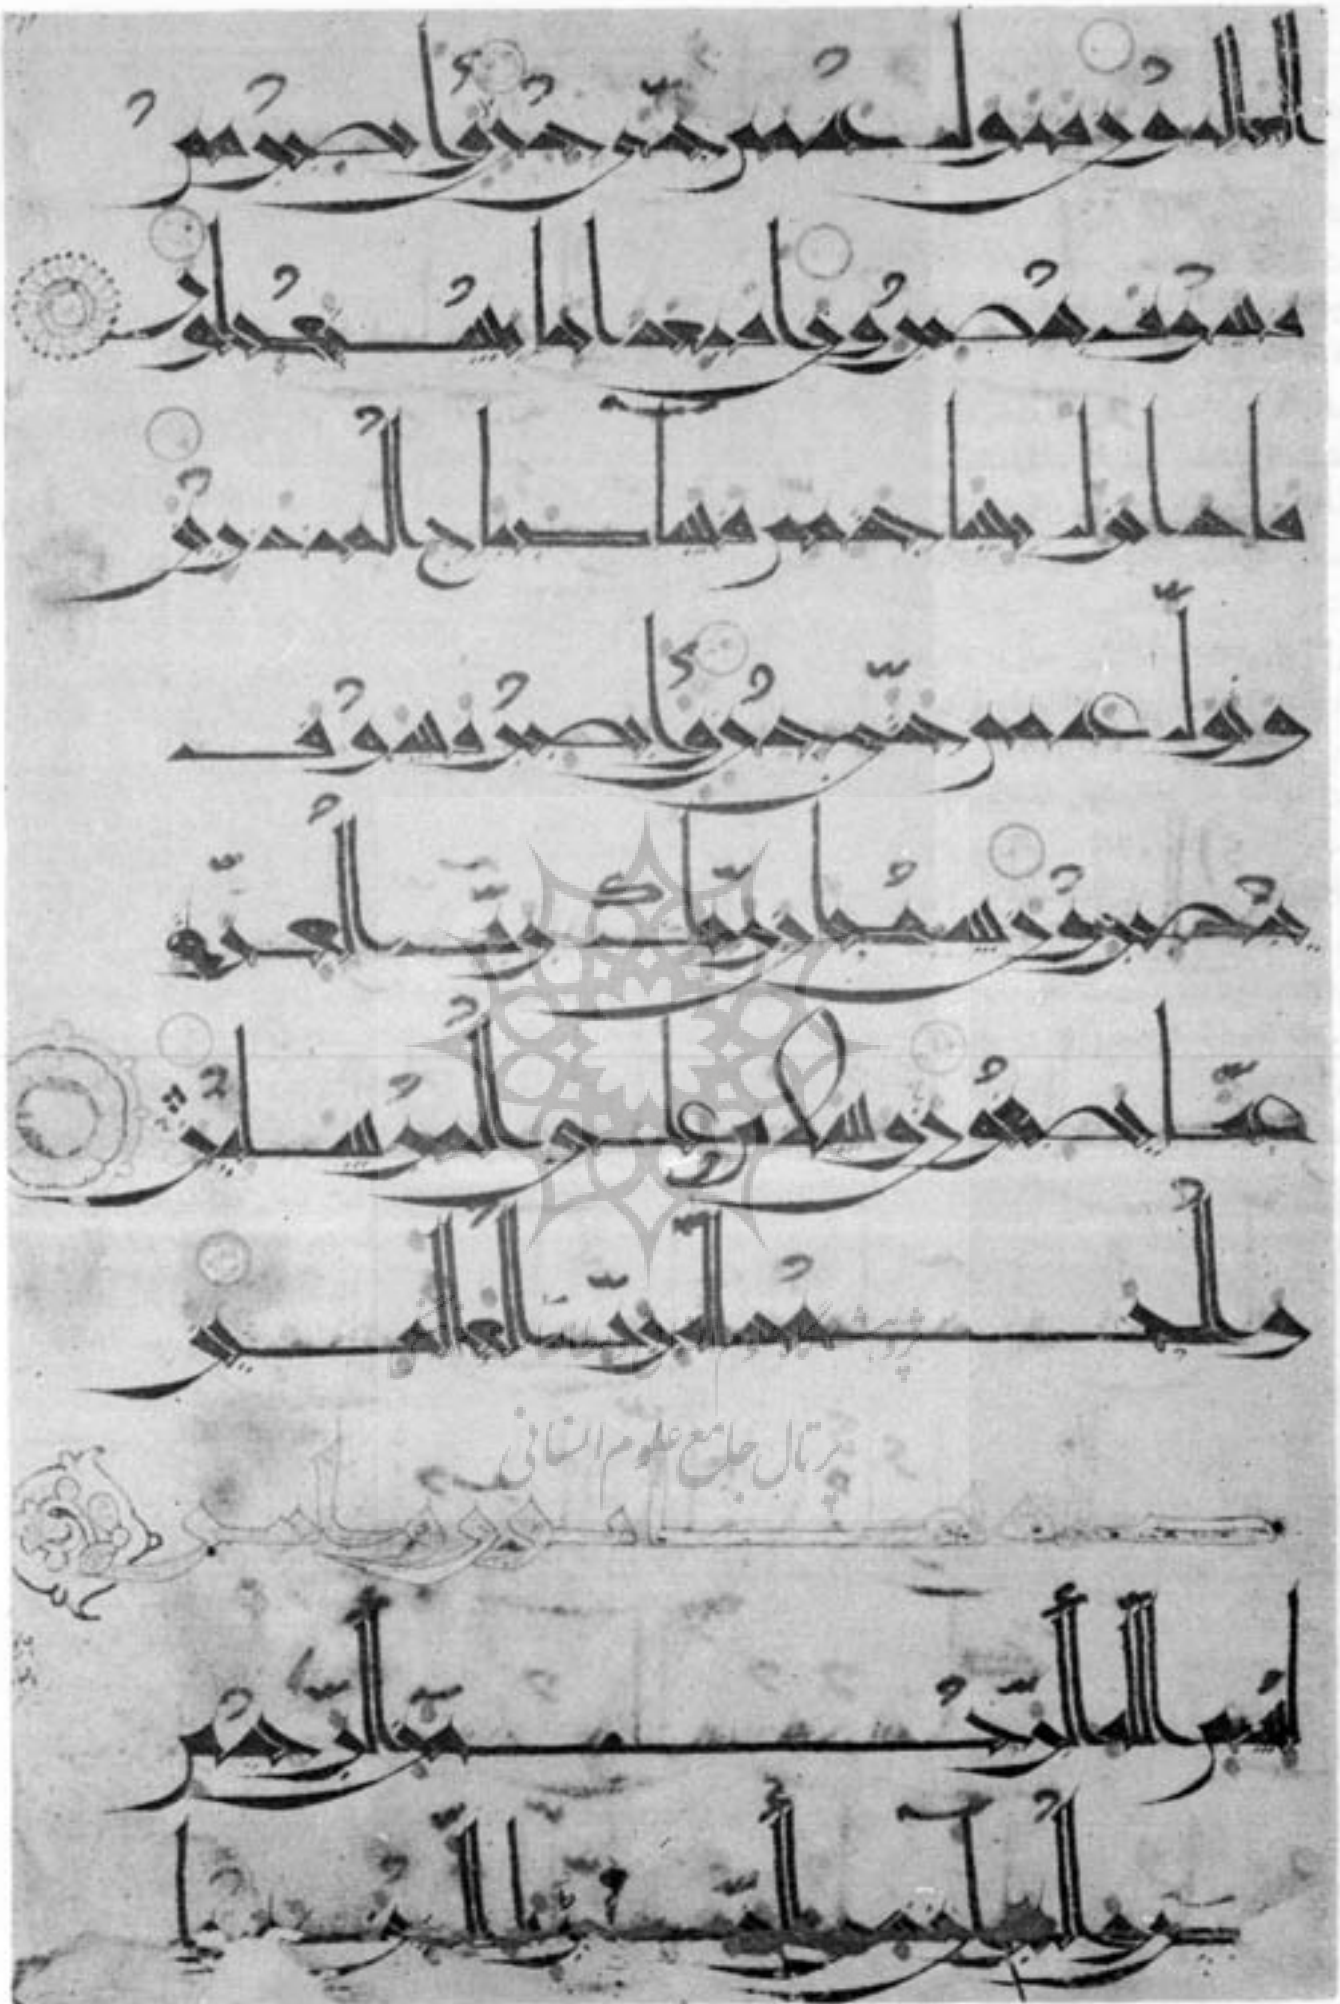 الغالبون فتول عنهم حتى حين وابصرهم
فسوف يبصرون افبعذابنا يستعجلون
فاذا نزل بساحتهم فساء صباح المنذرين
وتول عنهم حتى حين وابصر فسوف
يبصرون سبحان ربك رب العزة
عما يصفون وسلام على المرسلين
والحمد لله رب العالمين
پرتال جامع علوم انسانی
بسم الله الرحمن الرحيم